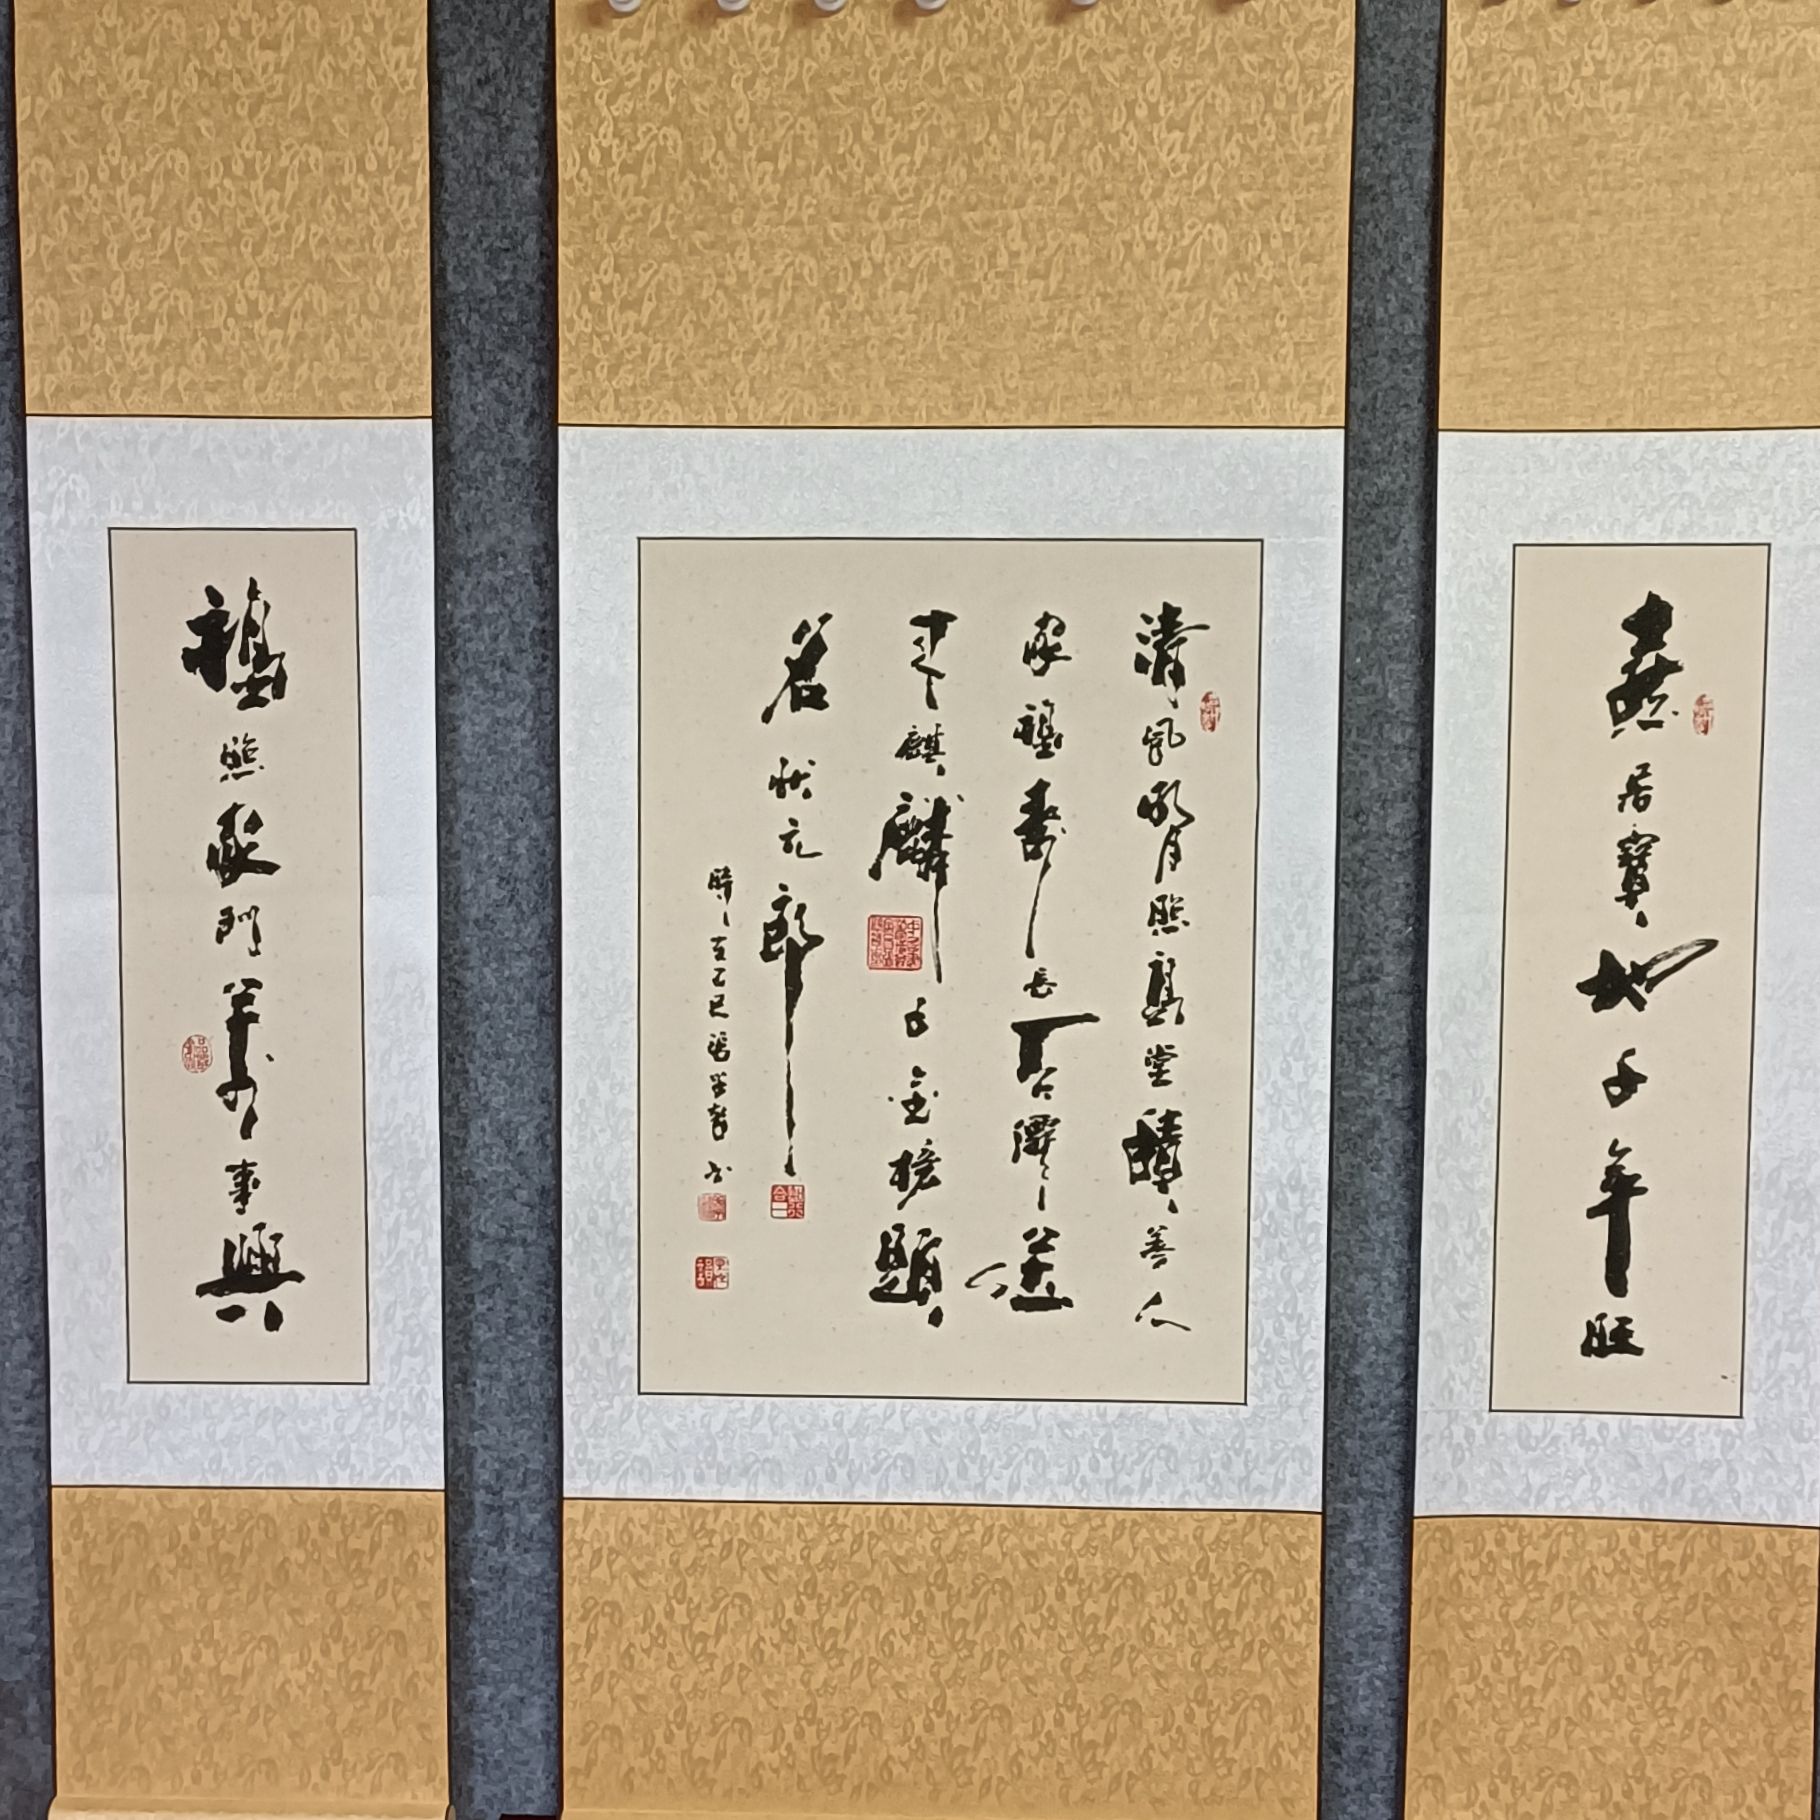 燕居寶地千年旺
清風明月照高堂積善人
家福壽長百代儒善
天上麒麟千金榜題
名狀元郎
時在乙巳
書
福照家門萬事興